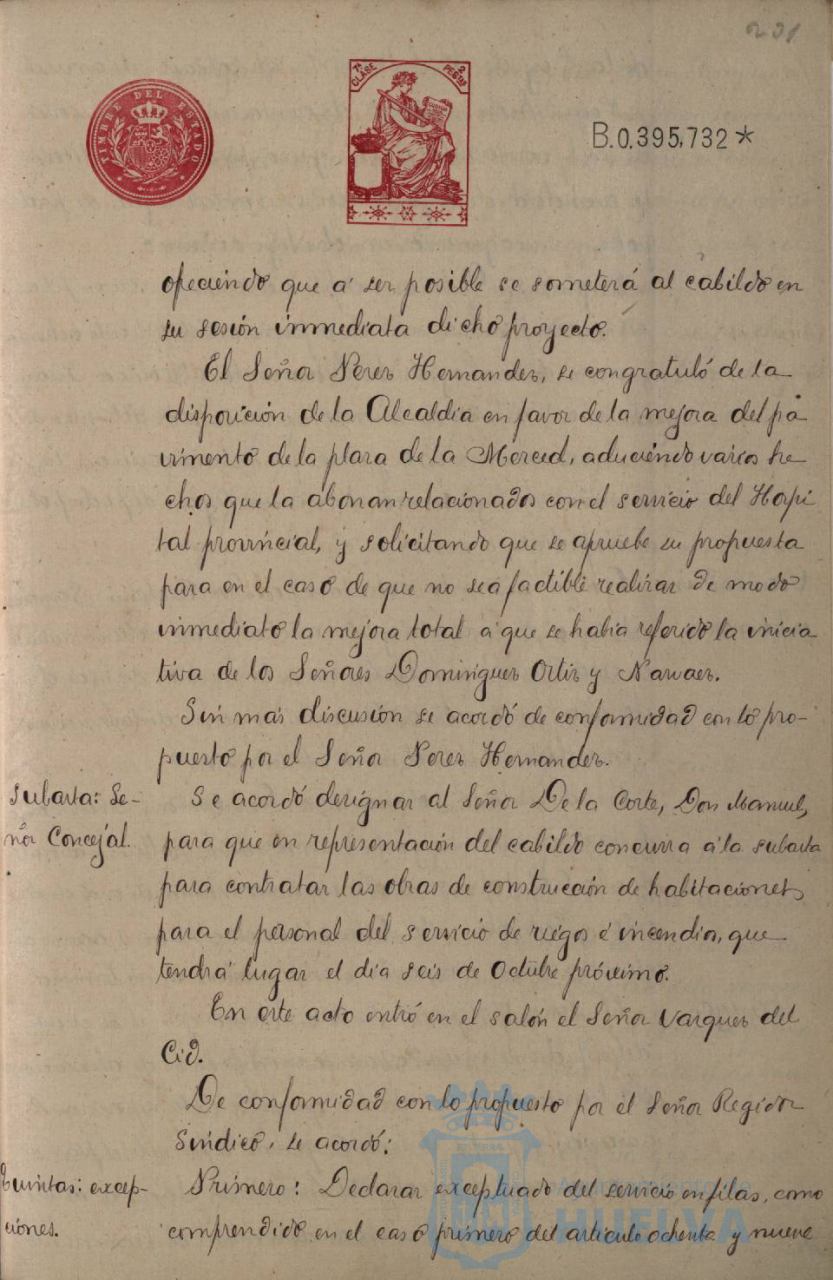 231
TIMBRE DEL ESTADO
1ª CLASE
2 PESETAS
B.0,395,732*
opeciendo que á ser posible se someterá al cabildo en
su sesión inmediata dicho proyecto.
El Señor Perez Hernandez, se congratuló de la
disposición de la Alcaldia en favor de la mejora del pa
vimento de la plaza de la Merced, aduciendo varios he
chos que la abonan relacionados con el servicio del Hospi
tal provincial, y solicitando que se apruebe su propuesta
para en el caso de que no sea factible realizar de modo
inmediato la mejora total a que se habia referido la inicia
tiva de los Señores Dominguez Ortiz y Narvaez.
Sin más discusión se acordó de conformidad con lo pro-
puesto por el Señor Perez Hernandez.
Subasta: Se-
ñor Concejal.
Se acordó designar al Señor De la Corte, Don Manuel,
para que en representación del cabildo concurra á la subasta
para contratar las obras de construcción de habitaciones
para el personal del servicio de riegos é incendio, que
tendrá lugar el dia seis de Octubre próximo.
En este acto entró en el salón el Señor Vazquez del
Cid.
De conformidad con lo propuesto por el Señor Regidor
Sindico, se acordó:
Quintas: excep-
ciones.
Primero: Declarar exceptuado del servicio en filas, como
comprendido en el caso primero del articulo ochenta y nueve
HUELVA